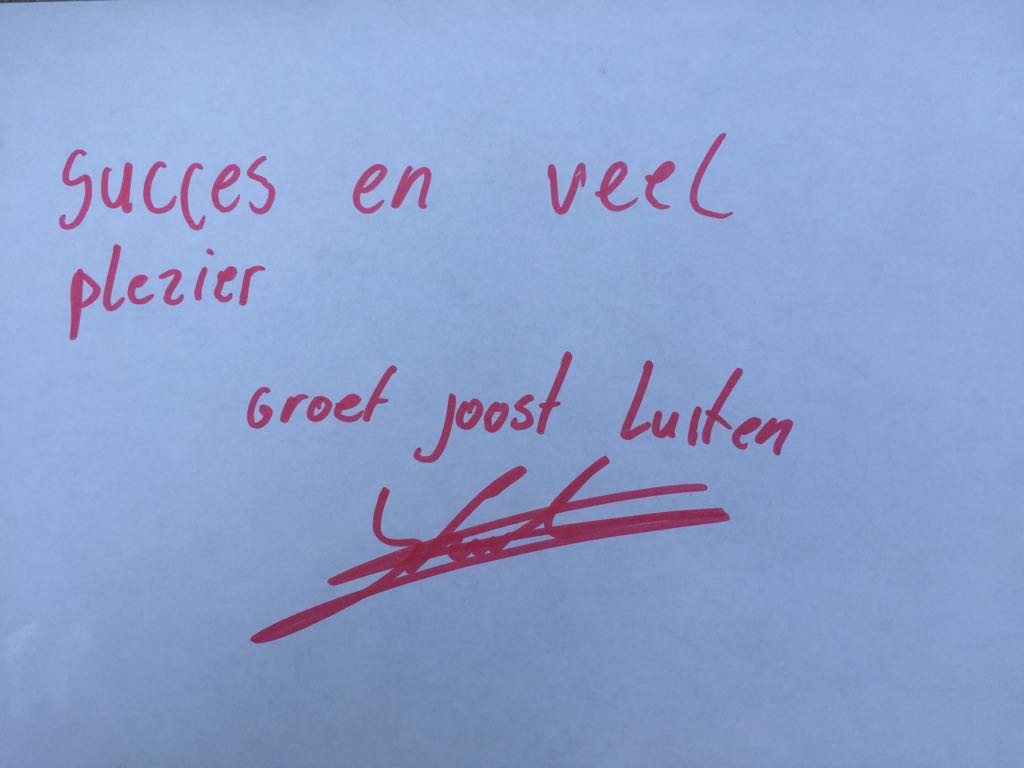 succes en veel
plezier
Groet Joost Luiten